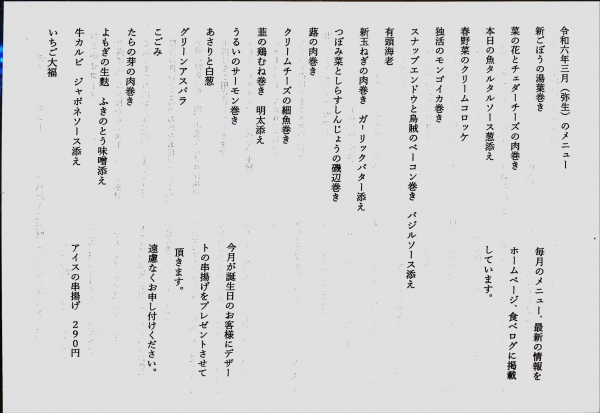 令和六年三月（弥生）のメニュー
新ごぼうの湯葉巻き
菜の花とチェダーチーズの肉巻き
本日の魚タルタルソース葱添え
春野菜のクリームコロッケ
独活のモンゴイカ巻き
スナップエンドウと烏賊のベーコン巻き　バジルソース添え
有頭海老
新玉ねぎの肉巻き　ガーリックバター添え
つぼみ菜としらすしんじょうの磯辺巻き
蕗の肉巻き
クリームチーズの細魚巻き
韮の鶏むね巻き　明太添え
うるいのサーモン巻き
あさりと白葱
グリーンアスパラ
こごみ
たらの芽の肉巻き
よもぎの生麩　ふきのとう味噌添え
牛カルビ　ジャポネソース添え
いちご大福
毎月のメニュー、最新の情報を
ホームページ、食べログに掲載
しています。
今月が誕生日のお客様にデザー
トの串揚げをプレゼントさせて
頂きます。
遠慮なくお申し付けください。
アイスの串揚げ　290円